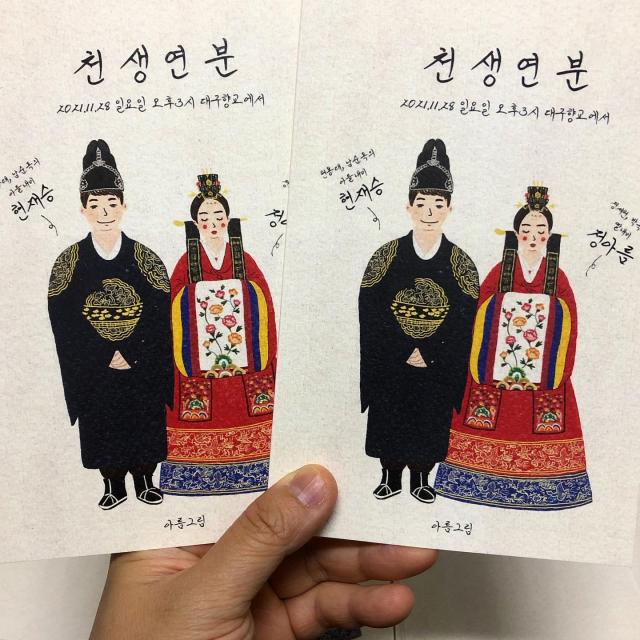 천생연분
2021.11.28 일요일 오후3시 대구향교에서
아들내미
현재승
아름그림
천생연분
2021.11.28 일요일 오후3시 대구향교에서
아들내미
현재승
정아름
아름그림